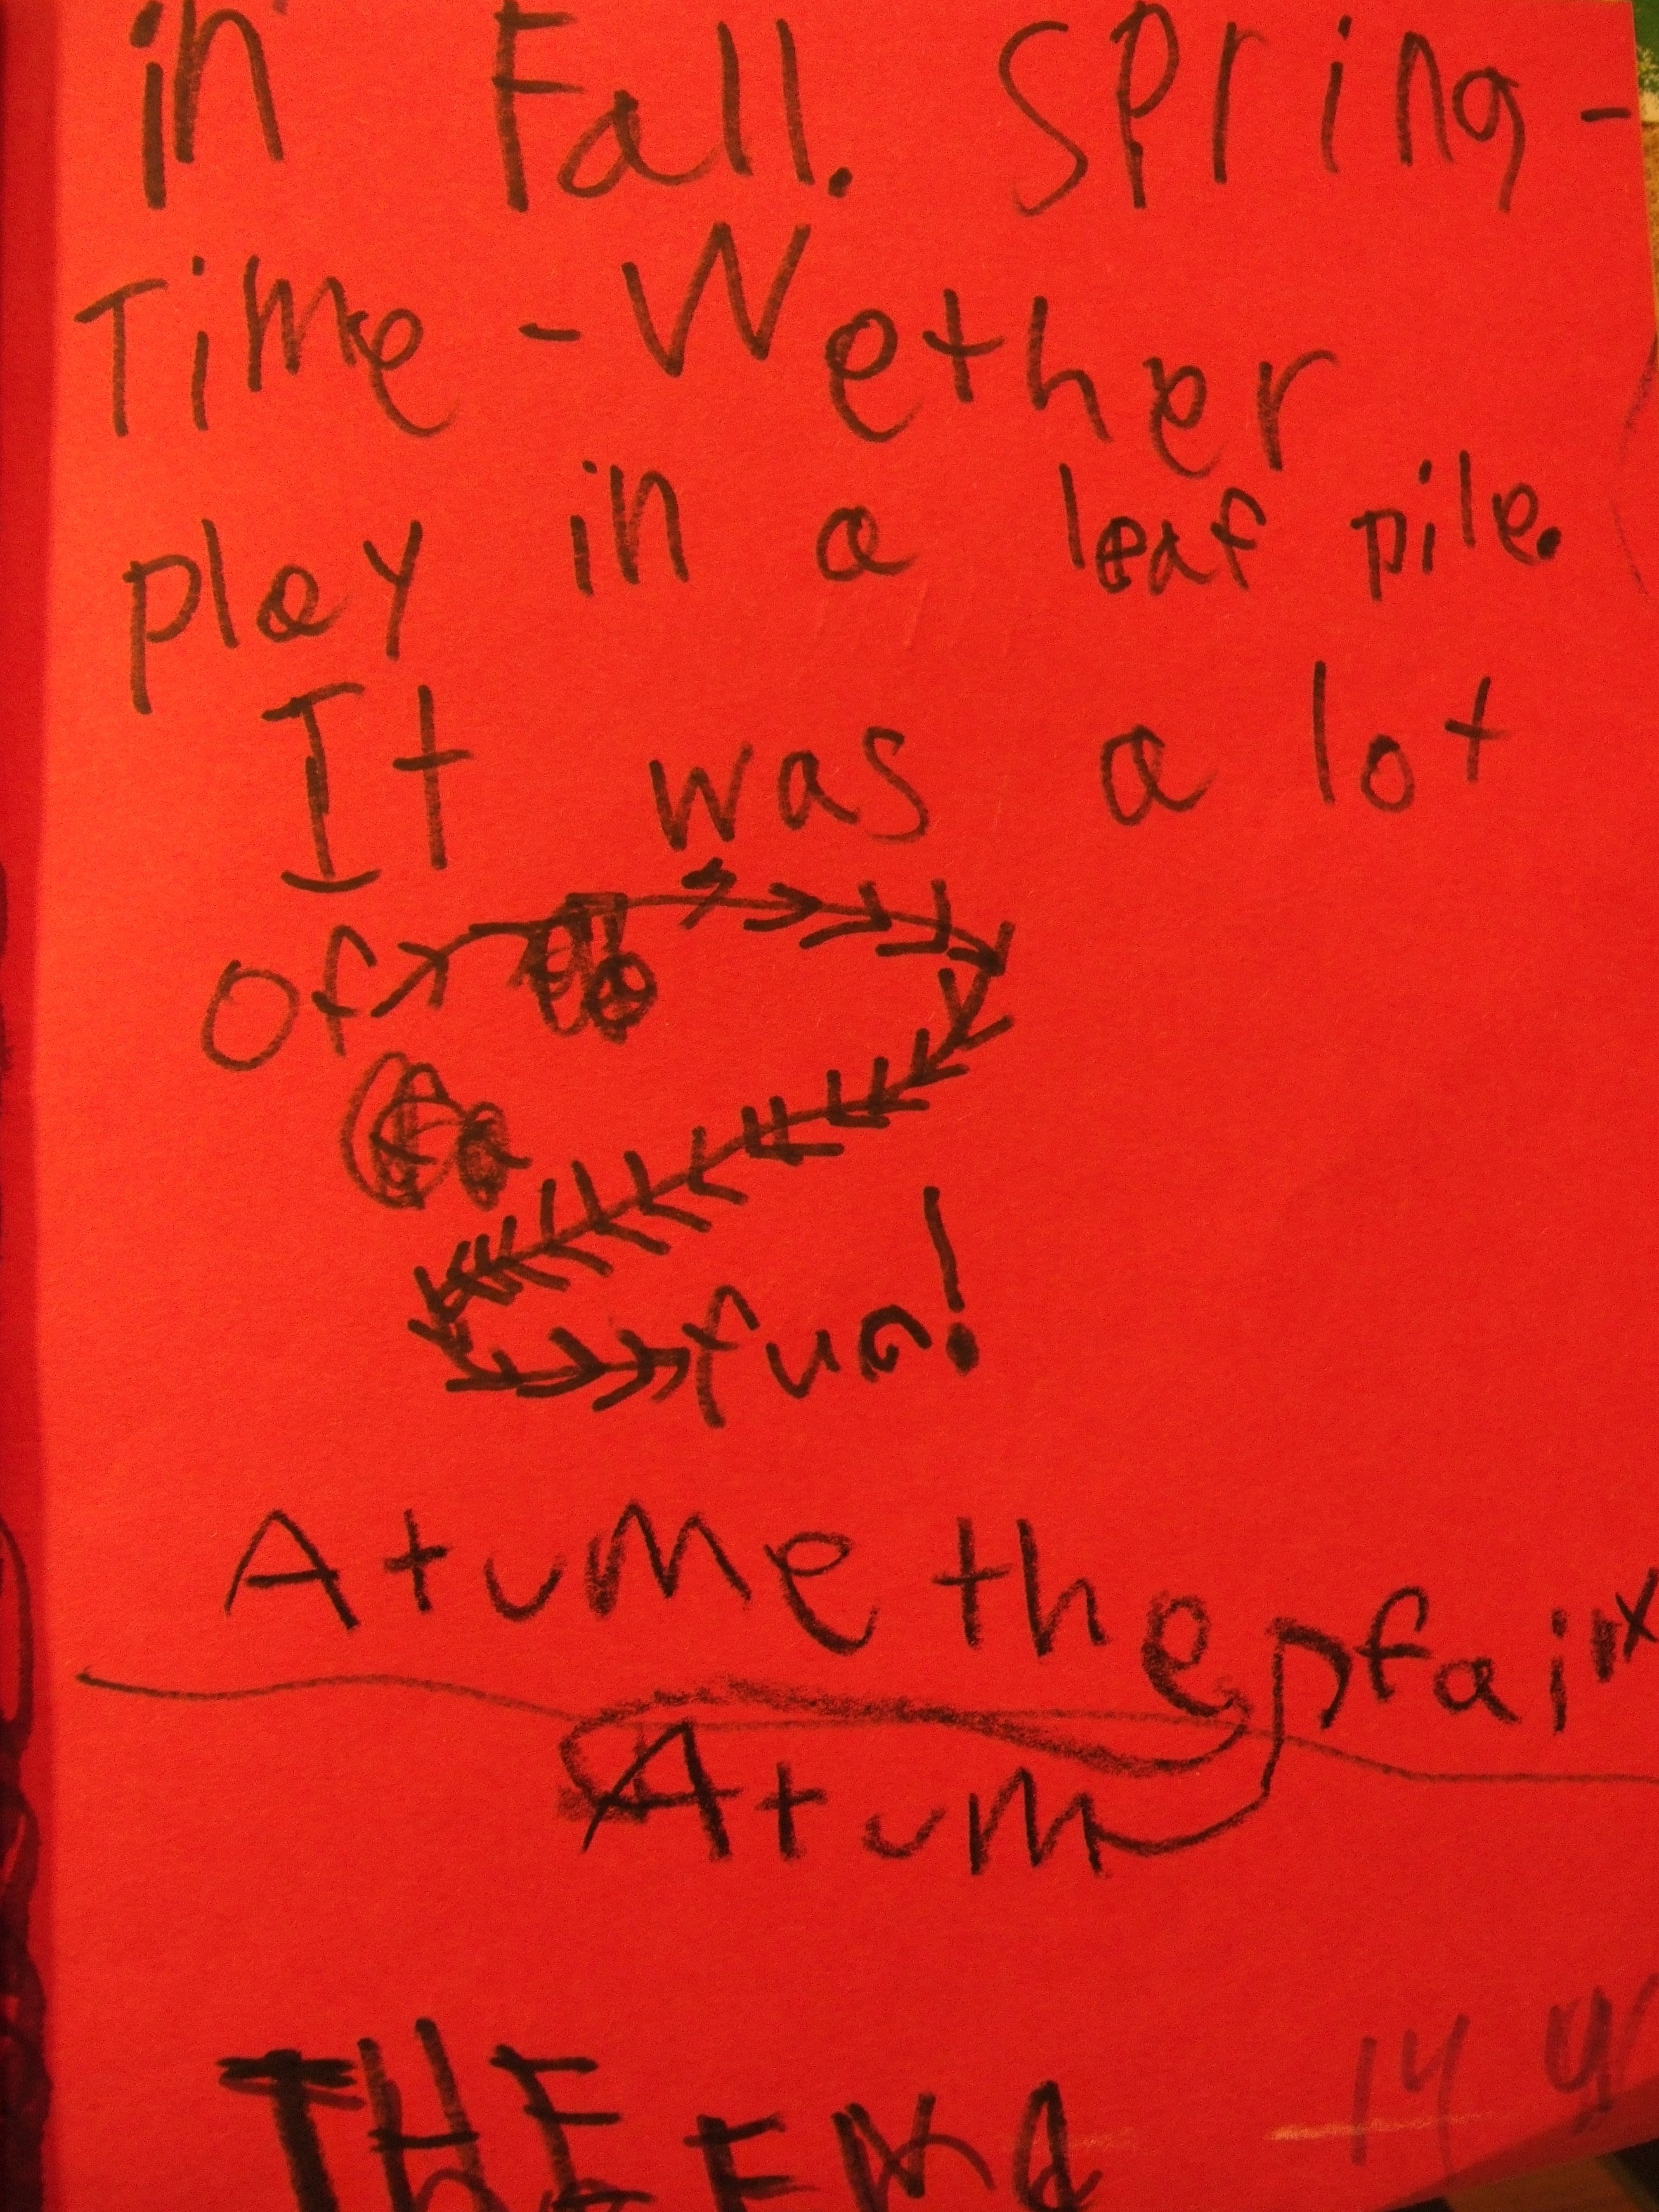 in Fall. Spring-
Time-Wether
play in a leaf pile.
It was a lot
of
fun!
Atume the
Atum
THE END
14